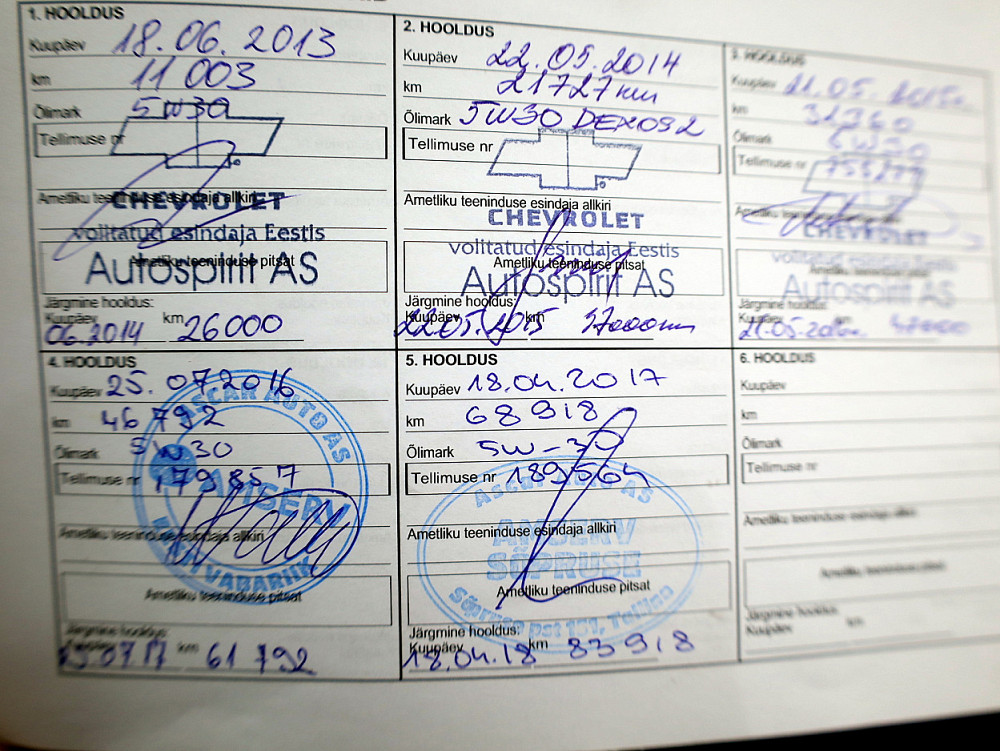 1. HOOLDUS
Kuupäev 18.06.2013
km 11 003
Õlimark 5W30
Tellimuse nr
Ametliku teeninduse esindaja allkiri
CHEVROLET
volitatud esindaja Eestis
Ametliku teeninduse pitsat
Autospirit AS
Järgmine hooldus:
Kuupäev 06.2014 km 26000
2. HOOLDUS
Kuupäev 22.05.2014
km 21727 km
Õlimark 5W30 DEXOS2
Tellimuse nr
Ametliku teeninduse esindaja allkiri
CHEVROLET
volitatud esindaja Eestis
Ametliku teeninduse pitsat
Autospirit AS
Järgmine hooldus:
Kuupäev 22.05.2015 km 37000km
3. HOOLDUS
Kuupäev 21.05.2015a
km
Õlimark 5W30
Tellimuse nr
CHEVROLET
volitatud esindaja Eestis
Ametliku teeninduse pitsat
Autospirit AS
Järgmine hooldus:
Kuupäev 21.05.2016a km 47000
4. HOOLDUS
Kuupäev 25.07.2016
km 46 792
Õlimark 5W30
Tellimuse nr 179857
ASCAR AUTO AS
AMSERV
Ametliku teeninduse esindaja allkiri
VABARIIK
Ametliku teeninduse pitsat
Järgmine hooldus:
Kuupäev 25.07.17 km 61 792
5. HOOLDUS
Kuupäev 18.04.2017
km 68918
Õlimark 5W-30
Tellimuse nr 189564
Ascar Auto AS
Ametliku teeninduse esindaja allkiri
AMSERV
SÕPRUSE
Ametliku teeninduse pitsat
Sõpruse pst 151, Tallinn
Järgmine hooldus:
Kuupäev 18.04.18 km 83918
6. HOOLDUS
Kuupäev
km
Õlimark
Tellimuse nr
Ametliku teeninduse esindaja allkiri
Ametliku teeninduse pitsat
Järgmine hooldus:
Kuupäev km